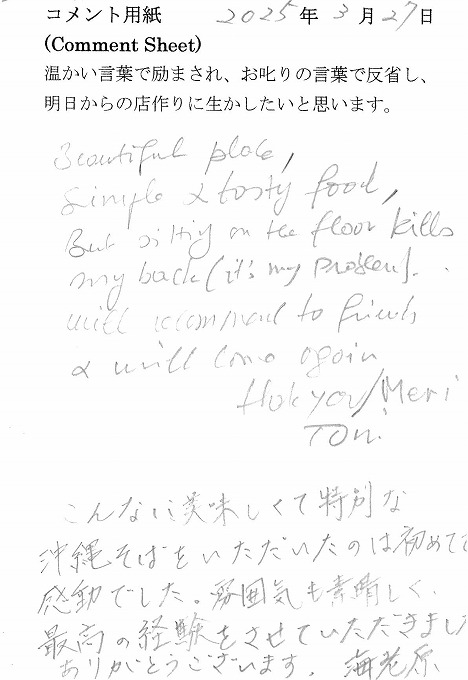 コメント用紙 2025年3月27日
(Comment Sheet)
温かい言葉で励まされ、お叱りの言葉で反省し、
明日からの店作りに生かしたいと思います。
Beautiful place,
Simple & tasty food,
But sitting on the floor kills
my back (it's my problem).
will recommend to friends
& will come again
Meri
Toni
こんなに美味しくて特別な
沖縄そばをいただいたのは初めてで
感動でした。雰囲気も素晴しく、
最高の経験をさせていただきました
ありがとうございます。海老原